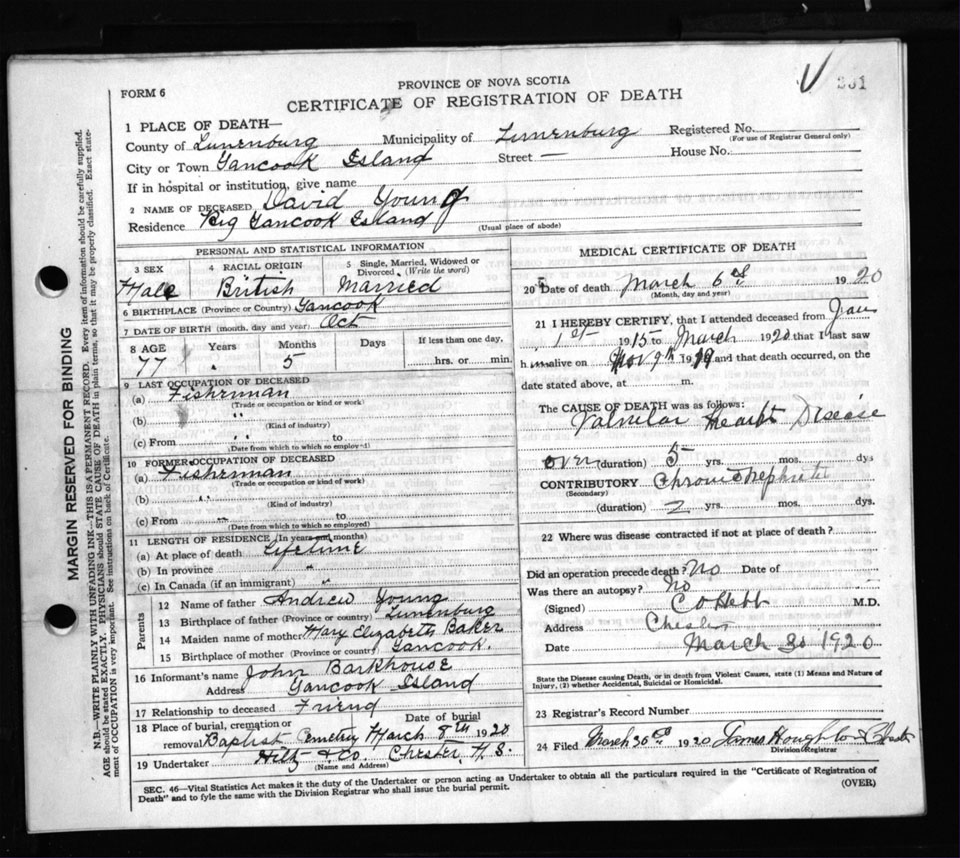 V 331
PROVINCE OF NOVA SCOTIA
FORM 6
CERTIFICATE OF REGISTRATION OF DEATH
1 PLACE OF DEATH—
County of Lunenburg Municipality of Lunenburg Registered No.
(For use of Registrar General only)
City or Town Tancook Island Street — House No.
If in hospital or institution, give name
2 NAME OF DECEASED David Young
Residence Big Tancook Island
(Usual place of abode)
PERSONAL AND STATISTICAL INFORMATION
3 SEX 4 RACIAL ORIGIN 5 Single, Married, Widowed or Divorced. (Write the word)
Male British Married
6 BIRTHPLACE (Province or Country) Tancook
7 DATE OF BIRTH (month, day and year) Oct
8 AGE Years Months Days If less than one day,
77 5 hrs. or min.
9 LAST OCCUPATION OF DECEASED
(a) Fishrman
(Trade or occupation or kind of work)
(b) "
(Kind of industry)
(c) From " to
(Date from which to which so employed)
10 FORMER OCCUPATION OF DECEASED
(a) Fishrman
(Trade or occupation or kind of work)
(b) "
(Kind of industry)
(c) From " to
(Date from which to which so employed)
11 LENGTH OF RESIDENCE (In years and months)
(a) At place of death Lifetime
(b) In province "
(c) In Canada (if an immigrant) "
Parents
12 Name of father Andrew Young
13 Birthplace of father (Province or country) Lunenburg
14 Maiden name of mother Mary Elizabeth Baker
15 Birthplace of mother (Province or country) Tancook.
16 Informant's name John Barkhouse
Address Tancook Island
17 Relationship to deceased Friend
18 Place of burial, cremation or removal Baptist Cemetry Date of burial March 8th 1920
19 Undertaker Hiltz & Co. Chester N.S.
(Name and Address)
MEDICAL CERTIFICATE OF DEATH
20 Date of death March 6th 1920
(Month, day and year)
21 I HEREBY CERTIFY, that I attended deceased from Jan
1st 1915 to March 1920 that I last saw
h im alive on Nov 9th 1919 and that death occurred, on the
date stated above, at m.
The CAUSE OF DEATH was as follows:
Valvular Heart Disease
over (duration) 5 yrs. mos. dys
CONTRIBUTORY Chronic Nephritis
(Secondary)
(duration) 2 yrs. mos. dys.
22 Where was disease contracted if not at place of death?
Did an operation precede death? No Date of
Was there an autopsy? No
(Signed) C O Hebb M.D.
Address Chester
Date March 30 1920
State the Disease causing Death, or in death from Violent Causes, state (1) Means and Nature of
Injury, (2) whether Accidental, Suicidal or Homicidal.
23 Registrar's Record Number
24 Filed March 30th 1920 James Houghton
Division Registrar
SEC. 46—Vital Statistics Act makes it the duty of the Undertaker or person acting as Undertaker to obtain all the particulars required in the "Certificate of Registration of
Death" and to fyle the same with the Division Registrar who shall issue the burial permit. (OVER)
MARGIN RESERVED FOR BINDING
N.B.—WRITE PLAINLY WITH UNFADING INK—THIS IS A PERMANENT RECORD. Every item of information should be carefully supplied.
AGE should be stated EXACTLY. PHYSICIANS should STATE CAUSE OF DEATH in plain terms, so that it may be properly classified. Exact state-
ment of OCCUPATION is very important. See instructions on back of Certificate.